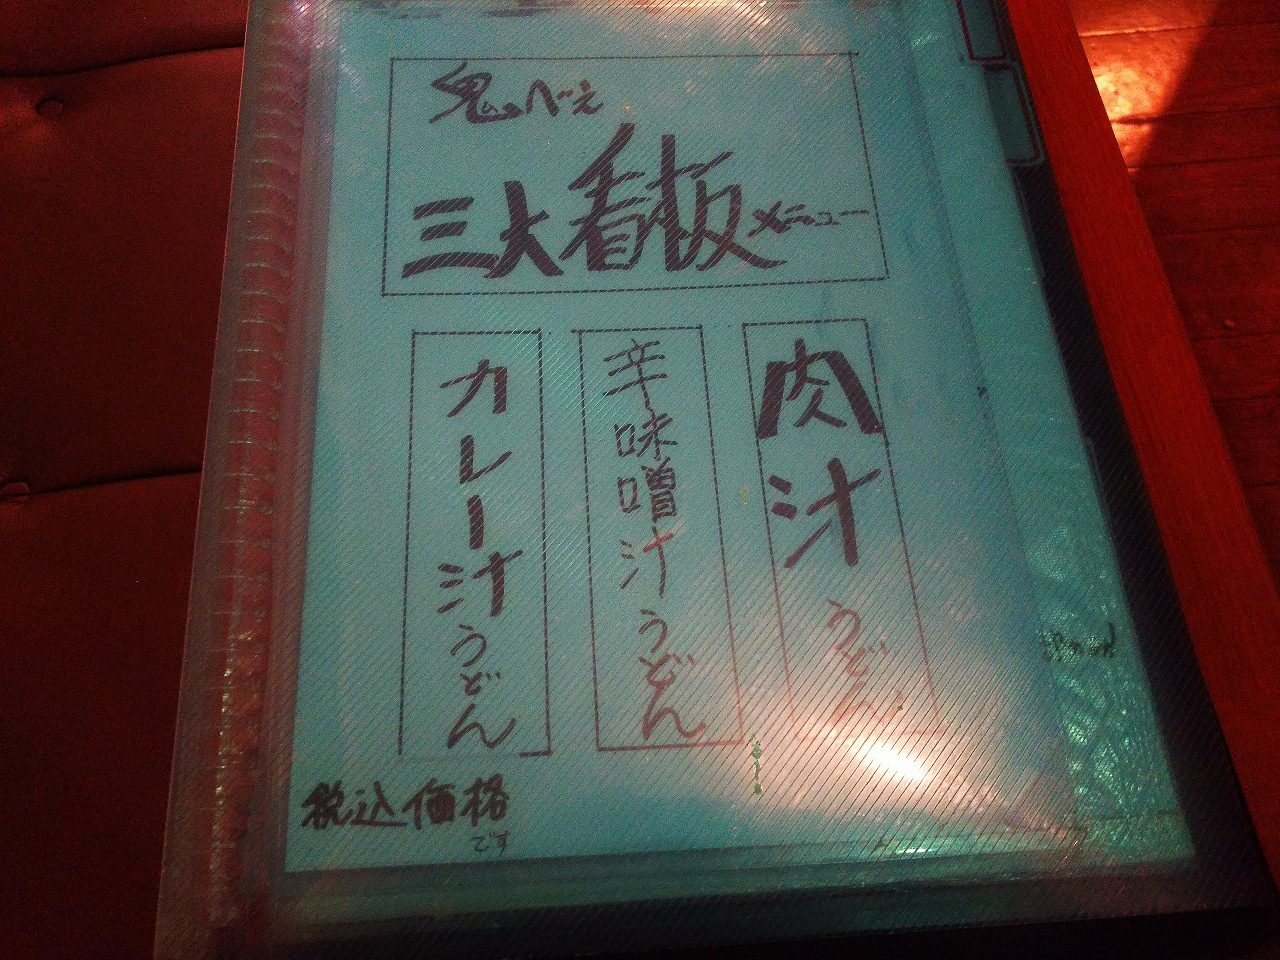 鬼へべえ
三大看板メニュー
肉汁うどん
辛味噌汁うどん
カレー汁うどん
税込価格
です